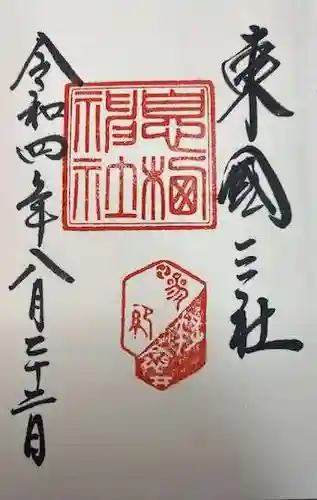 東國三社
息栖
神社
令和四年八月二十三日